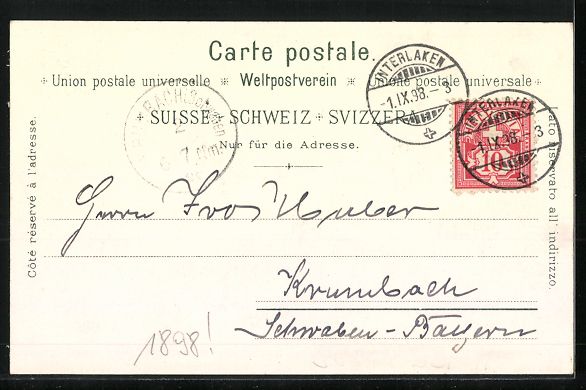 Carte postale.
Union postale universelle Weltpostverein Unione postale universale
SUISSE SCHWEIZ SVIZZERA
Nur für die Adresse.
Côté réservé à l'adresse.
lato riservato all' indirizzo.
INTERLAKEN
1.IX.98. 3
INTERLAKEN
1.IX.98. 3
10
Herrn Huber
Krumbach
Schwaben-Bayern
1898!